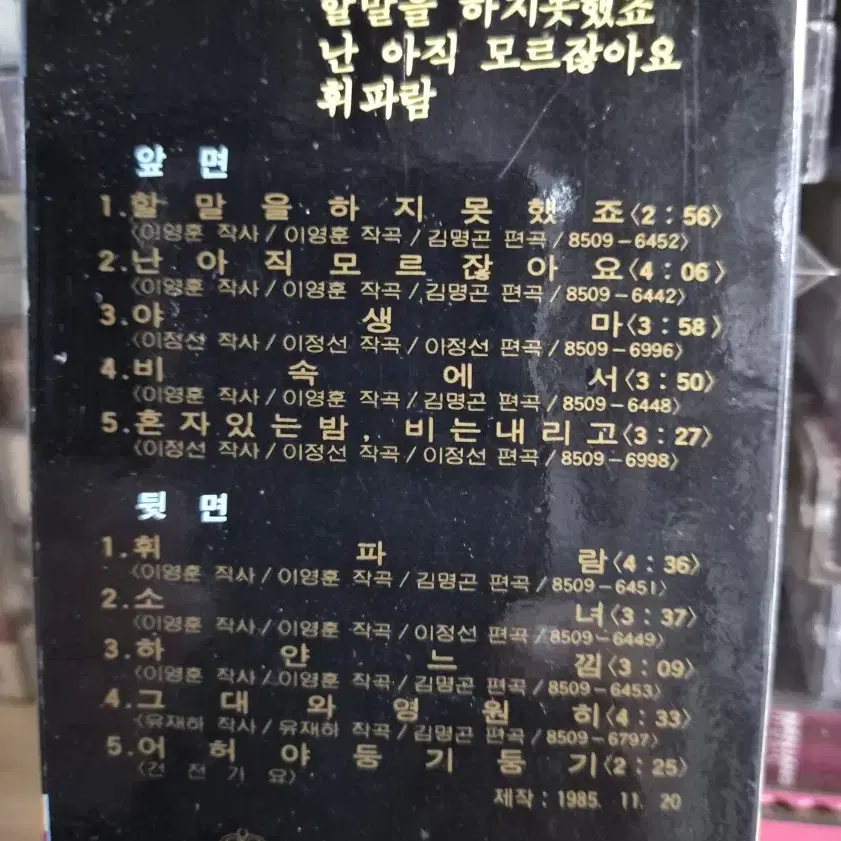 할말을 하지못했죠
난 아직 모르잖아요
휘파람
앞 면
1. 할 말 을 하 지 못 했 죠〈2 : 56〉
〈이영훈 작사 / 이영훈 작곡 / 김명곤 편곡 / 8509-6452〉
2. 난 아 직 모 르 잖 아 요〈4 : 06〉
〈이영훈 작사 / 이영훈 작곡 / 김명곤 편곡 / 8509-6442〉
3. 야 생 마〈3 : 58〉
〈이정선 작사 / 이정선 작곡 / 이정선 편곡 / 8509-6996〉
4. 비 속 에 서〈3 : 50〉
〈이영훈 작사 / 이영훈 작곡 / 김명곤 편곡 / 8509-6448〉
5. 혼 자 있 는 밤 , 비 는 내 리 고〈3 : 27〉
〈이정선 작사 / 이정선 작곡 / 이정선 편곡 / 8509-6998〉
뒷 면
1. 휘 파 람〈4 : 36〉
〈이영훈 작사 / 이영훈 작곡 / 김명곤 편곡 / 8509-6451〉
2. 소 녀〈3 : 37〉
〈이영훈 작사 / 이영훈 작곡 / 이정선 편곡 / 8509-6449〉
3. 하 얀 느 낌〈3 : 09〉
〈이영훈 작사 / 이영훈 작곡 / 김명곤 편곡 / 8509-6453〉
4. 그 대 와 영 원 히〈4 : 33〉
〈유재하 작사 / 유재하 작곡 / 김명곤 편곡 / 8509-6797〉
5. 어 허 야 둥 기 둥 기〈2 : 25〉
〈건 전 가 요〉
제작 : 1985. 11. 20